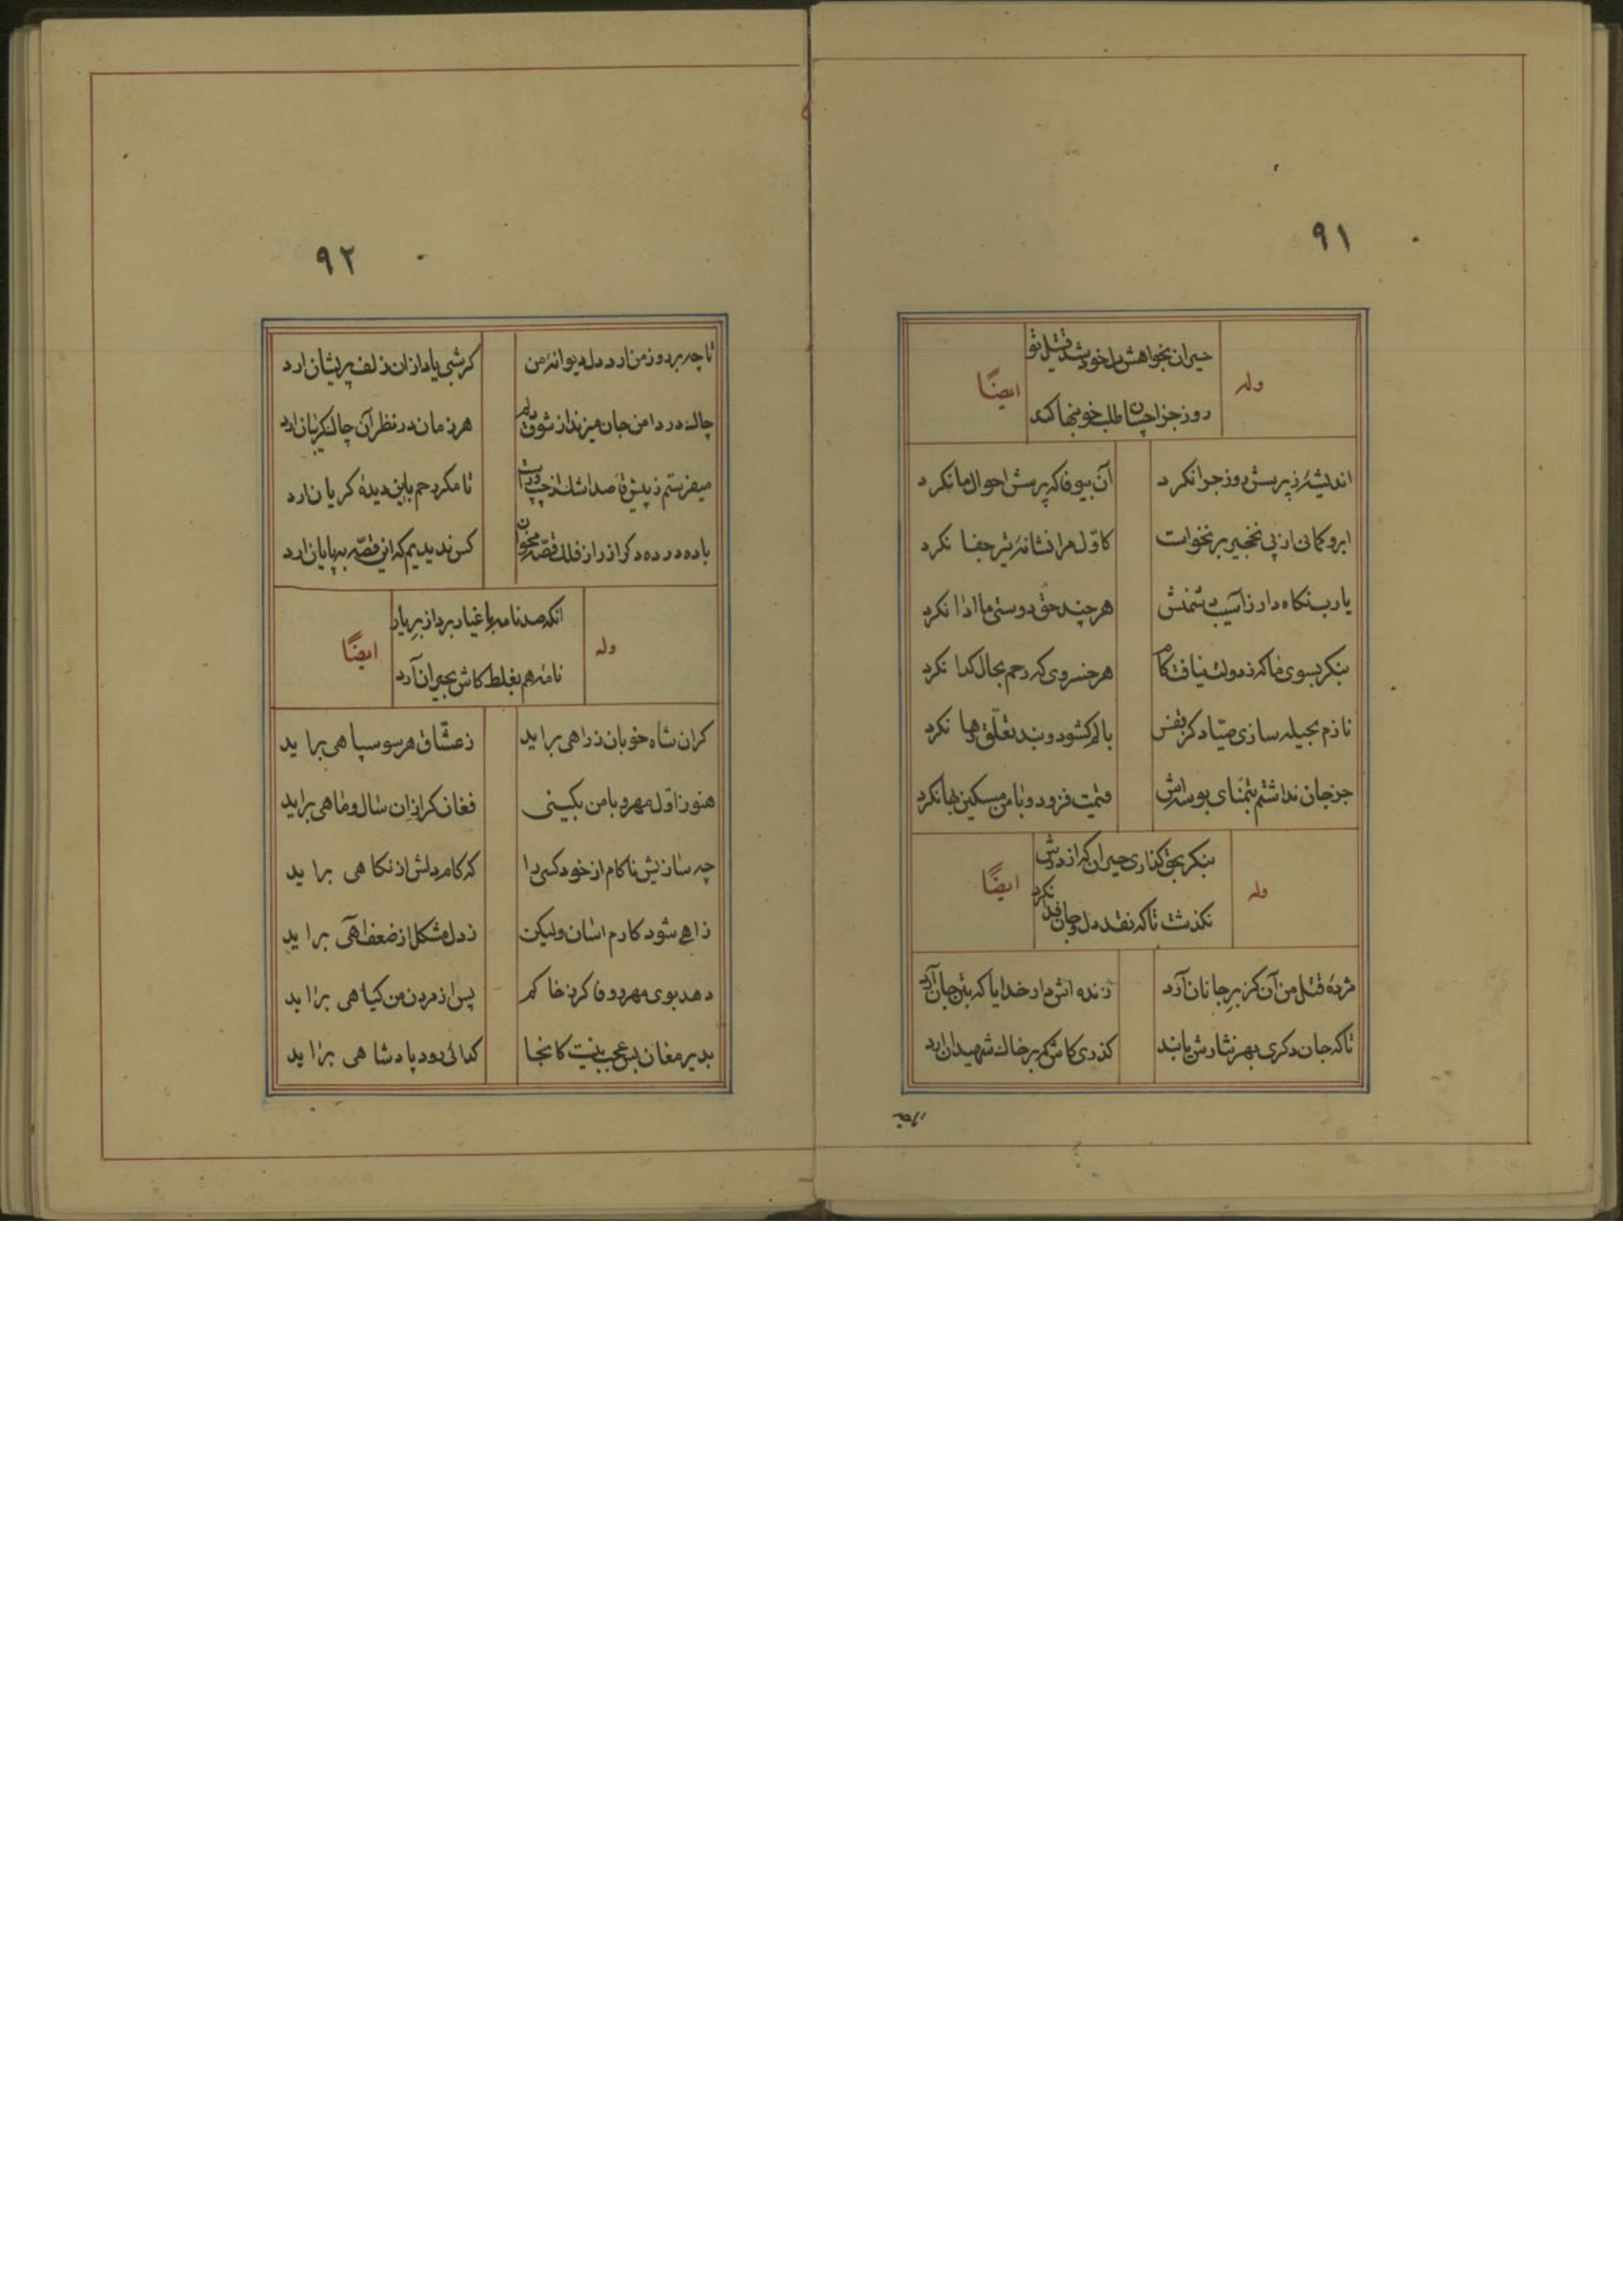 ۹۱
حیران بخواهش دل خود شد قتیل تو
وله ایضًا
روز جزا چسان طلب خونبها کند
اندیشهٔ ز پرسش روز جزا نکرد آن بیوفا که پرسش احوال ما نکرد
ابرو کمانی از پی نخجیر برنخواست کاوّل مرا نشانهٔ تیر جفا نکرد
یارب نکاه دار ز آسیب دشمنش هر چند حق دوستی ما ادا نکرد
بنکر بسوی ما که ز دولت نیافت کام هر خسروی که رحم بحال کدا نکرد
نازم بحیله سازی صیّاد کز قفس بالم کشود و بند تعلّق رها نکرد
جز جان نداشتم بتمنّای بوسه‌اش قیمت فزود و با من مسکین بها نکرد
بنکر بحق کذاری حیران که از درش
وله ایضًا
نکذشت تا که نقد دل و جان فدا نکرد
مژدهٔ قتل من آن کز بر جانان آرد زنده اش دار خدایا که بتن جان آرد
تا که جان دکری بهر نثارش یابند کذری کاش که بر خاک شهیدان ارد
تا چه
۹۲
تا چه بر روز من ارد دل دیوانهٔ من کر شبی یاد از ان زلف پریشان ارد
چاک در دامن جان میزند از شوق دلم هر زمان در نظر آن چاک کریبان ارد
میفرستم ز پیش قاصد اشک از چپ و راست تا مکر رحم باین دیدهٔ کریان ارد
باده در ده دکر از راز فلک قصّه مخوان کس ندیدیم که این قصّه بپایان ارد
انکه صد نامه باغیار برد از بر یار
وله ایضًا
نامهٔ هم بغلط کاش بحیران آرد
کر ان شاه خوبان ز راهی براید ز عشّاق هر سو سپاهی براید
هنوز اوّل مهر و با من بکینی فغان کر از ان سال و ماهی براید
چه سازیش ناکام از خود کسی را که کام دلش از نکاهی براید
ز اهی شود کارم اسان ولیکن ز دل مشکل از ضعف آهی براید
دهد بوی مهر و وفا کر ز خاکم پس از مردن من کیاهی براید
بدیر مغان بس عجب نیست کانجا کدائی رود پادشاهی براید